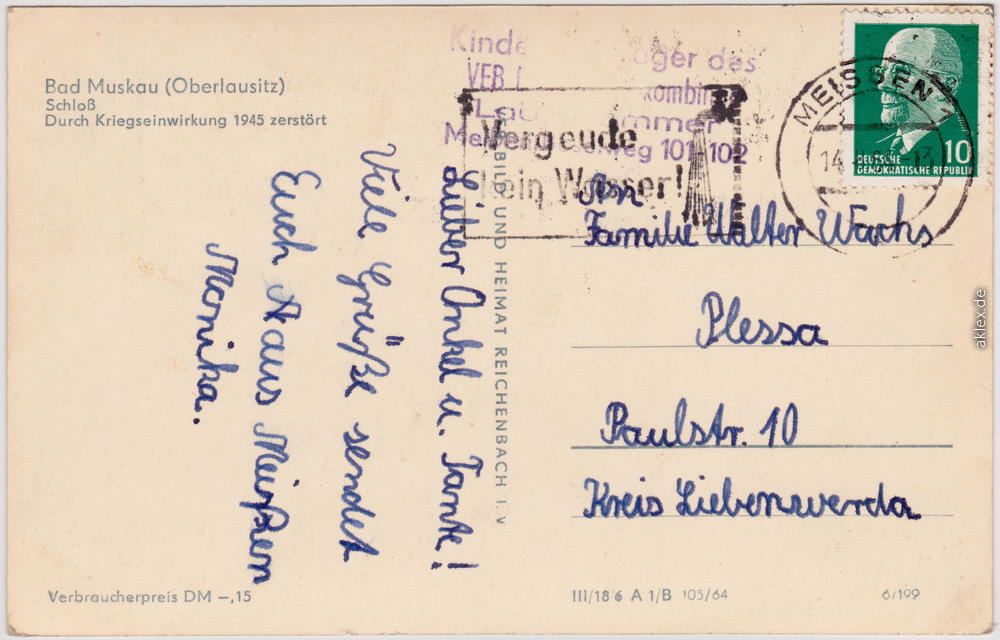 Bad Muskau (Oberlausitz)
Schloß
Durch Kriegseinwirkung 1945 zerstört
Kinde ger des
VEB kombin
Lau ammer
Mei weg 101/102
Vergeude
kein Wasser!
MEISSEN 1
14
DEUTSCHE 10
DEMOKRATISCHE REPUBLIK
Lieber Onkel u. Tante!
Viele Grüße sendet
Euch aus Meißen
Monika.
BILD UND HEIMAT REICHENBACH I. V
An
Familie Walter Wachs
Plessa
Paulstr. 10
Kreis Liebenwerda
Verbraucherpreis DM –,15
III/18 6 A 1/B 105/64
6/199
aklex.de